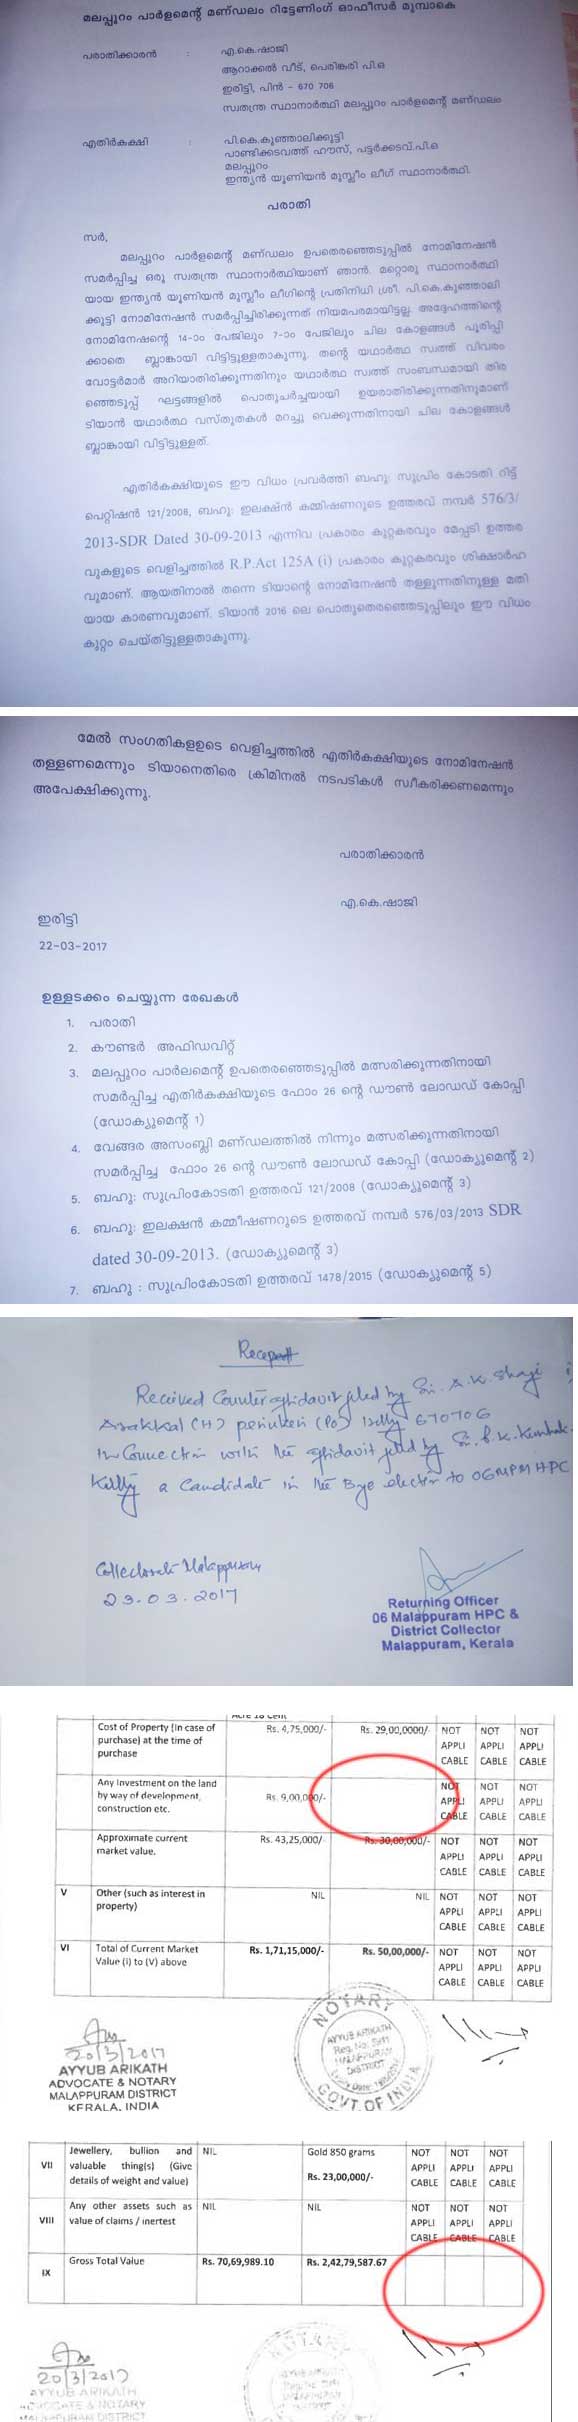 മലപ്പുറം പാർളമെന്റ് മണ്ഡലം റിട്ടേണിംഗ് ഓഫീസർ മുമ്പാകെ
പരാതിക്കാരൻ : എ.കെ.ഷാജി
ആറാക്കൽ വീട്, പെരിങ്കരി പി.ഒ
ഇരിട്ടി, പിൻ – 670 706
സ്വതന്ത്ര സ്ഥാനാർത്ഥി മലപ്പുറം പാർളമെന്റ് മണ്ഡലം
എതിർകക്ഷി : പി.കെ.കുഞ്ഞാലിക്കുട്ടി
പാണ്ടിക്കടവത്ത് ഹൗസ്, പട്ടർക്കടവ്.പി.ഒ
മലപ്പുറം
ഇന്ത്യൻ യൂണിയൻ മുസ്ലീം ലീഗ് സ്ഥാനാർത്ഥി.
പരാതി
സർ,
മലപ്പുറം പാർളമെന്റ് മണ്ഡലം ഉപതെരഞ്ഞെടുപ്പിൽ നോമിനേഷൻ
സമർപ്പിച്ച ഒരു സ്വതന്ത്ര സ്ഥാനാർത്ഥിയാണ് ഞാൻ. മറ്റൊരു സ്ഥാനാർത്ഥി
യായ ഇന്ത്യൻ യൂണിയൻ മുസ്ലീം ലീഗിന്റെ പ്രതിനിധി ശ്രീ. പി.കെ.കുഞ്ഞാലി
ക്കുട്ടി നോമിനേഷൻ സമർപ്പിച്ചിരിക്കുന്നത് നിയമപരമായിട്ടല്ല. അദ്ദേഹത്തിന്റെ
നോമിനേഷന്റെ 14-ാം പേജിലും 7-ാം പേജിലും ചില കോളങ്ങൾ പൂരിപ്പി
ക്കാതെ ബ്ലാങ്കായി വിട്ടിട്ടുള്ളതാകുന്നു. തന്റെ യഥാർത്ഥ സ്വത്ത് വിവരം
വോട്ടർമാർ അറിയാതിരിക്കുന്നതിനും യഥാർത്ഥ സ്വത്ത് സംബന്ധമായി തിര
ഞ്ഞെടുപ്പ് ഘട്ടങ്ങളിൽ പൊതുചർച്ചയായി ഉയരാതിരിക്കുന്നതിനുമാണ്
ടിയാൻ യഥാർത്ഥ വസ്തുതകൾ മറച്ചു വെക്കുന്നതിനായി ചില കോളങ്ങൾ
ബ്ലാങ്കായി വിട്ടിട്ടുള്ളത്.
എതിർകക്ഷിയുടെ ഈ വിധം പ്രവർത്തി ബഹു: സുപ്രിം കോടതി റിട്ട്
പെറ്റിഷൻ 121/2008, ബഹു: ഇലക്ഷൻ കമ്മിഷണറുടെ ഉത്തരവ് നമ്പർ 576/3/
2013-SDR Dated 30-09-2013 എന്നിവ പ്രകാരം കുറ്റകരവും മേപ്പടി ഉത്തര
വുകളുടെ വെളിച്ചത്തിൽ R.P.Act 125A (i) പ്രകാരം കുറ്റകരവും ശിക്ഷാർഹ
വുമാണ്. ആയതിനാൽ തന്നെ ടിയാന്റെ നോമിനേഷൻ തള്ളുന്നതിനുള്ള മതി
യായ കാരണവുമാണ്. ടിയാൻ 2016 ലെ പൊതുതെരഞ്ഞെടുപ്പിലും ഈ വിധം
കുറ്റം ചെയ്തിട്ടുള്ളതാകുന്നു.
മേൽ സംഗതികളഉടെ വെളിച്ചത്തിൽ എതിർകക്ഷിയുടെ നോമിനേഷൻ
തള്ളണമെന്നും ടിയാനെതിരെ ക്രിമിനൽ നടപടികൾ സ്വീകരിക്കണമെന്നും
അപേക്ഷിക്കുന്നു.
പരാതിക്കാരൻ
എ.കെ.ഷാജി
ഇരിട്ടി
22-03-2017
ഉള്ളടക്കം ചെയ്യുന്ന രേഖകൾ
1. പരാതി
2. കൗണ്ടർ അഫിഡവിറ്റ്
3. മലപ്പുറം പാർലമെന്റ് ഉപതെരഞ്ഞെടുപ്പിൽ മത്സരിക്കുന്നതിനായി
സമർപ്പിച്ച എതിർകക്ഷിയുടെ ഫോം 26 ന്റെ ഡൗൺ ലോഡഡ് കോപ്പി
(ഡോക്യുമെന്റ് 1)
4. വേങ്ങര അസംബ്ലി മണ്ഡലത്തിൽ നിന്നും മത്സരിക്കുന്നതിനായി
സമർപ്പിച്ച ഫോം 26 ന്റെ ഡൗൺ ലോഡഡ് കോപ്പി (ഡോക്യുമെന്റ് 2)
5. ബഹു: സുപ്രിംകോടതി ഉത്തരവ് 121/2008 (ഡോക്യുമെന്റ് 3)
6. ബഹു: ഇലക്ഷൻ കമ്മീഷണറുടെ ഉത്തരവ് നമ്പർ 576/03/2013 SDR
dated 30-09-2013. (ഡോക്യുമെന്റ് 3)
7. ബഹു : സുപ്രിംകോടതി ഉത്തരവ് 1478/2015 (ഡോക്യുമെന്റ് 5)
Received Counter affidavit filed by Sri. A.K. Shaji
Arakkal (H) (Po) Iritty 670706
In Connection with the affidavit filed by Sri. P.K. Kunhali
Kutty a Candidate in the Bye election to 06 MPM HPC
Collectorate Malappuram
23.03.2017
Returning Officer
06 Malappuram HPC &
District Collector
Malappuram, Kerala
Acre 18 Cent
Cost of Property (In case of purchase) at the time of purchase Rs. 4,75,000/- Rs. 29,00,0000/- NOT APPLI CABLE NOT APPLI CABLE NOT APPLI CABLE
Any Investment on the land by way of development, construction etc. Rs. 9,00,000/- NOT APPLI CABLE NOT APPLI CABLE NOT APPLI CABLE
Approximate current market value. Rs. 43,25,000/ Rs. 30,00,000/- NOT APPLI CABLE NOT APPLI CABLE NOT APPLI CABLE
V Other (such as interest in property) NIL NIL NOT APPLI CABLE NOT APPLI CABLE NOT APPLI CABLE
VI Total of Current Market Value (i) to (V) above Rs. 1,71,15,000/- Rs. 50,00,000/- NOT APPLI CABLE NOT APPLI CABLE NOT APPLI CABLE
20/3/2017
AYYUB ARIKATH
ADVOCATE & NOTARY
MALAPPURAM DISTRICT
KERALA, INDIA
NOTARY
AYYUB ARIKATH
MALAPPURAM
DISTRICT
GOVT. OF INDIA
VII Jewellery, bullion and valuable thing(s) (Give details of weight and value) NIL Gold 850 grams Rs. 23,00,000/- NOT APPLI CABLE NOT APPLI CABLE NOT APPLI CABLE
VIII Any other assets such as value of claims / inertest NIL NIL NOT APPLI CABLE NOT APPLI CABLE NOT APPLI CABLE
IX Gross Total Value Rs. 70,69,989.10 Rs. 2,42,79,587.67
20/3/2017
AYYUB ARIKATH
ADVOCATE & NOTARY
MALAPPURAM DISTRICT
NOTARY